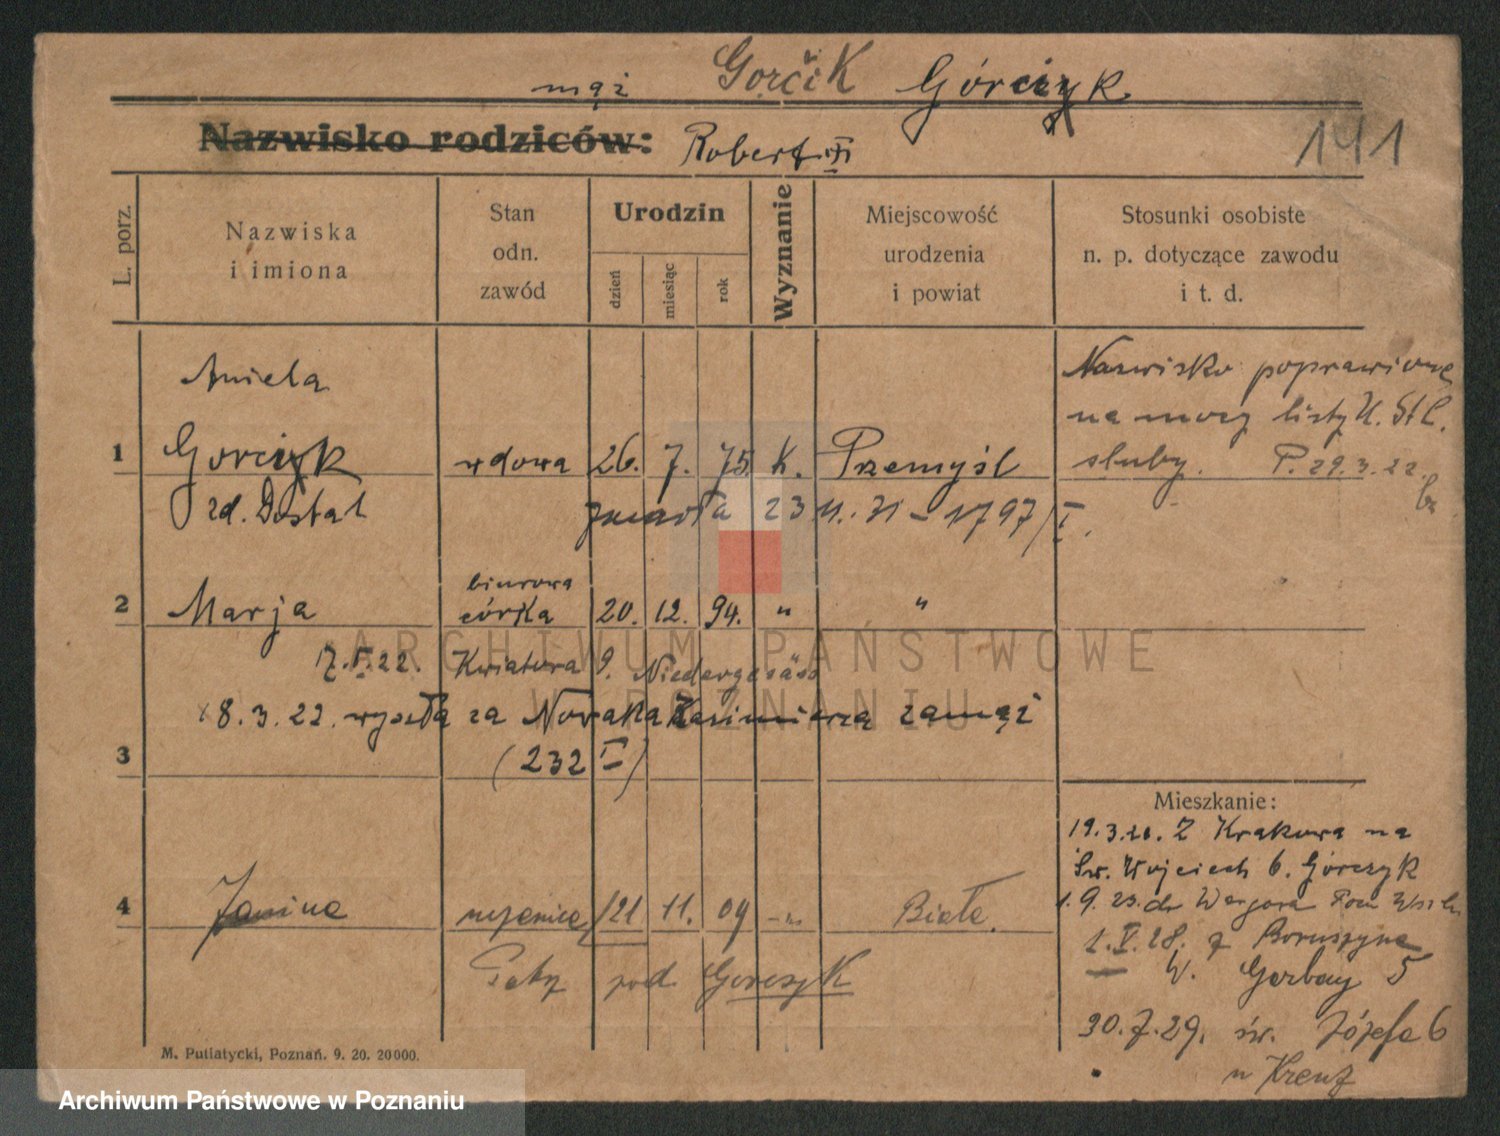 mąż Gorčik Górczyk
Nazwisko rodziców: Robert
141
L. porz.
Nazwiska i imiona
Stan odn. zawód
Urodzin
dzień
miesiąc
rok
Wyznanie
Miejscowość urodzenia i powiat
Stosunki osobiste n. p. dotyczące zawodu i t. d.
Aniela
1 Gorczyk wdowa 26. 7. 75. K. Przemyśl
zd. Dostal
zmarła 23 11. 31 - 1797/I.
Nazwisko poprawione
na mocy listy U. St. C.
śluby. P. 29.3.22.
biurowa
2 Marja córka 20. 12. 94. " "
17.I.22. Kwiatowa 9. Niedergesäss
8.3.22. wyszła za Nowaka Kazimierza zamąż
3 (232 I)
4 Janina 21 11. 09 -"- Biała.
pod Gorczyk
Mieszkanie:
19.3.20. Z Krakowa na
Św. Wojciech 6. Górczyk
1.9.23. do
1.V.28. z
W. Garbary 5
30.7.29. św. Józefa 6
u Krenz
M. Putiatycki, Poznań. 9. 20. 20000.
ARCHIWUM PAŃSTWOWE
W POZNANIU
Archiwum Państwowe w Poznaniu